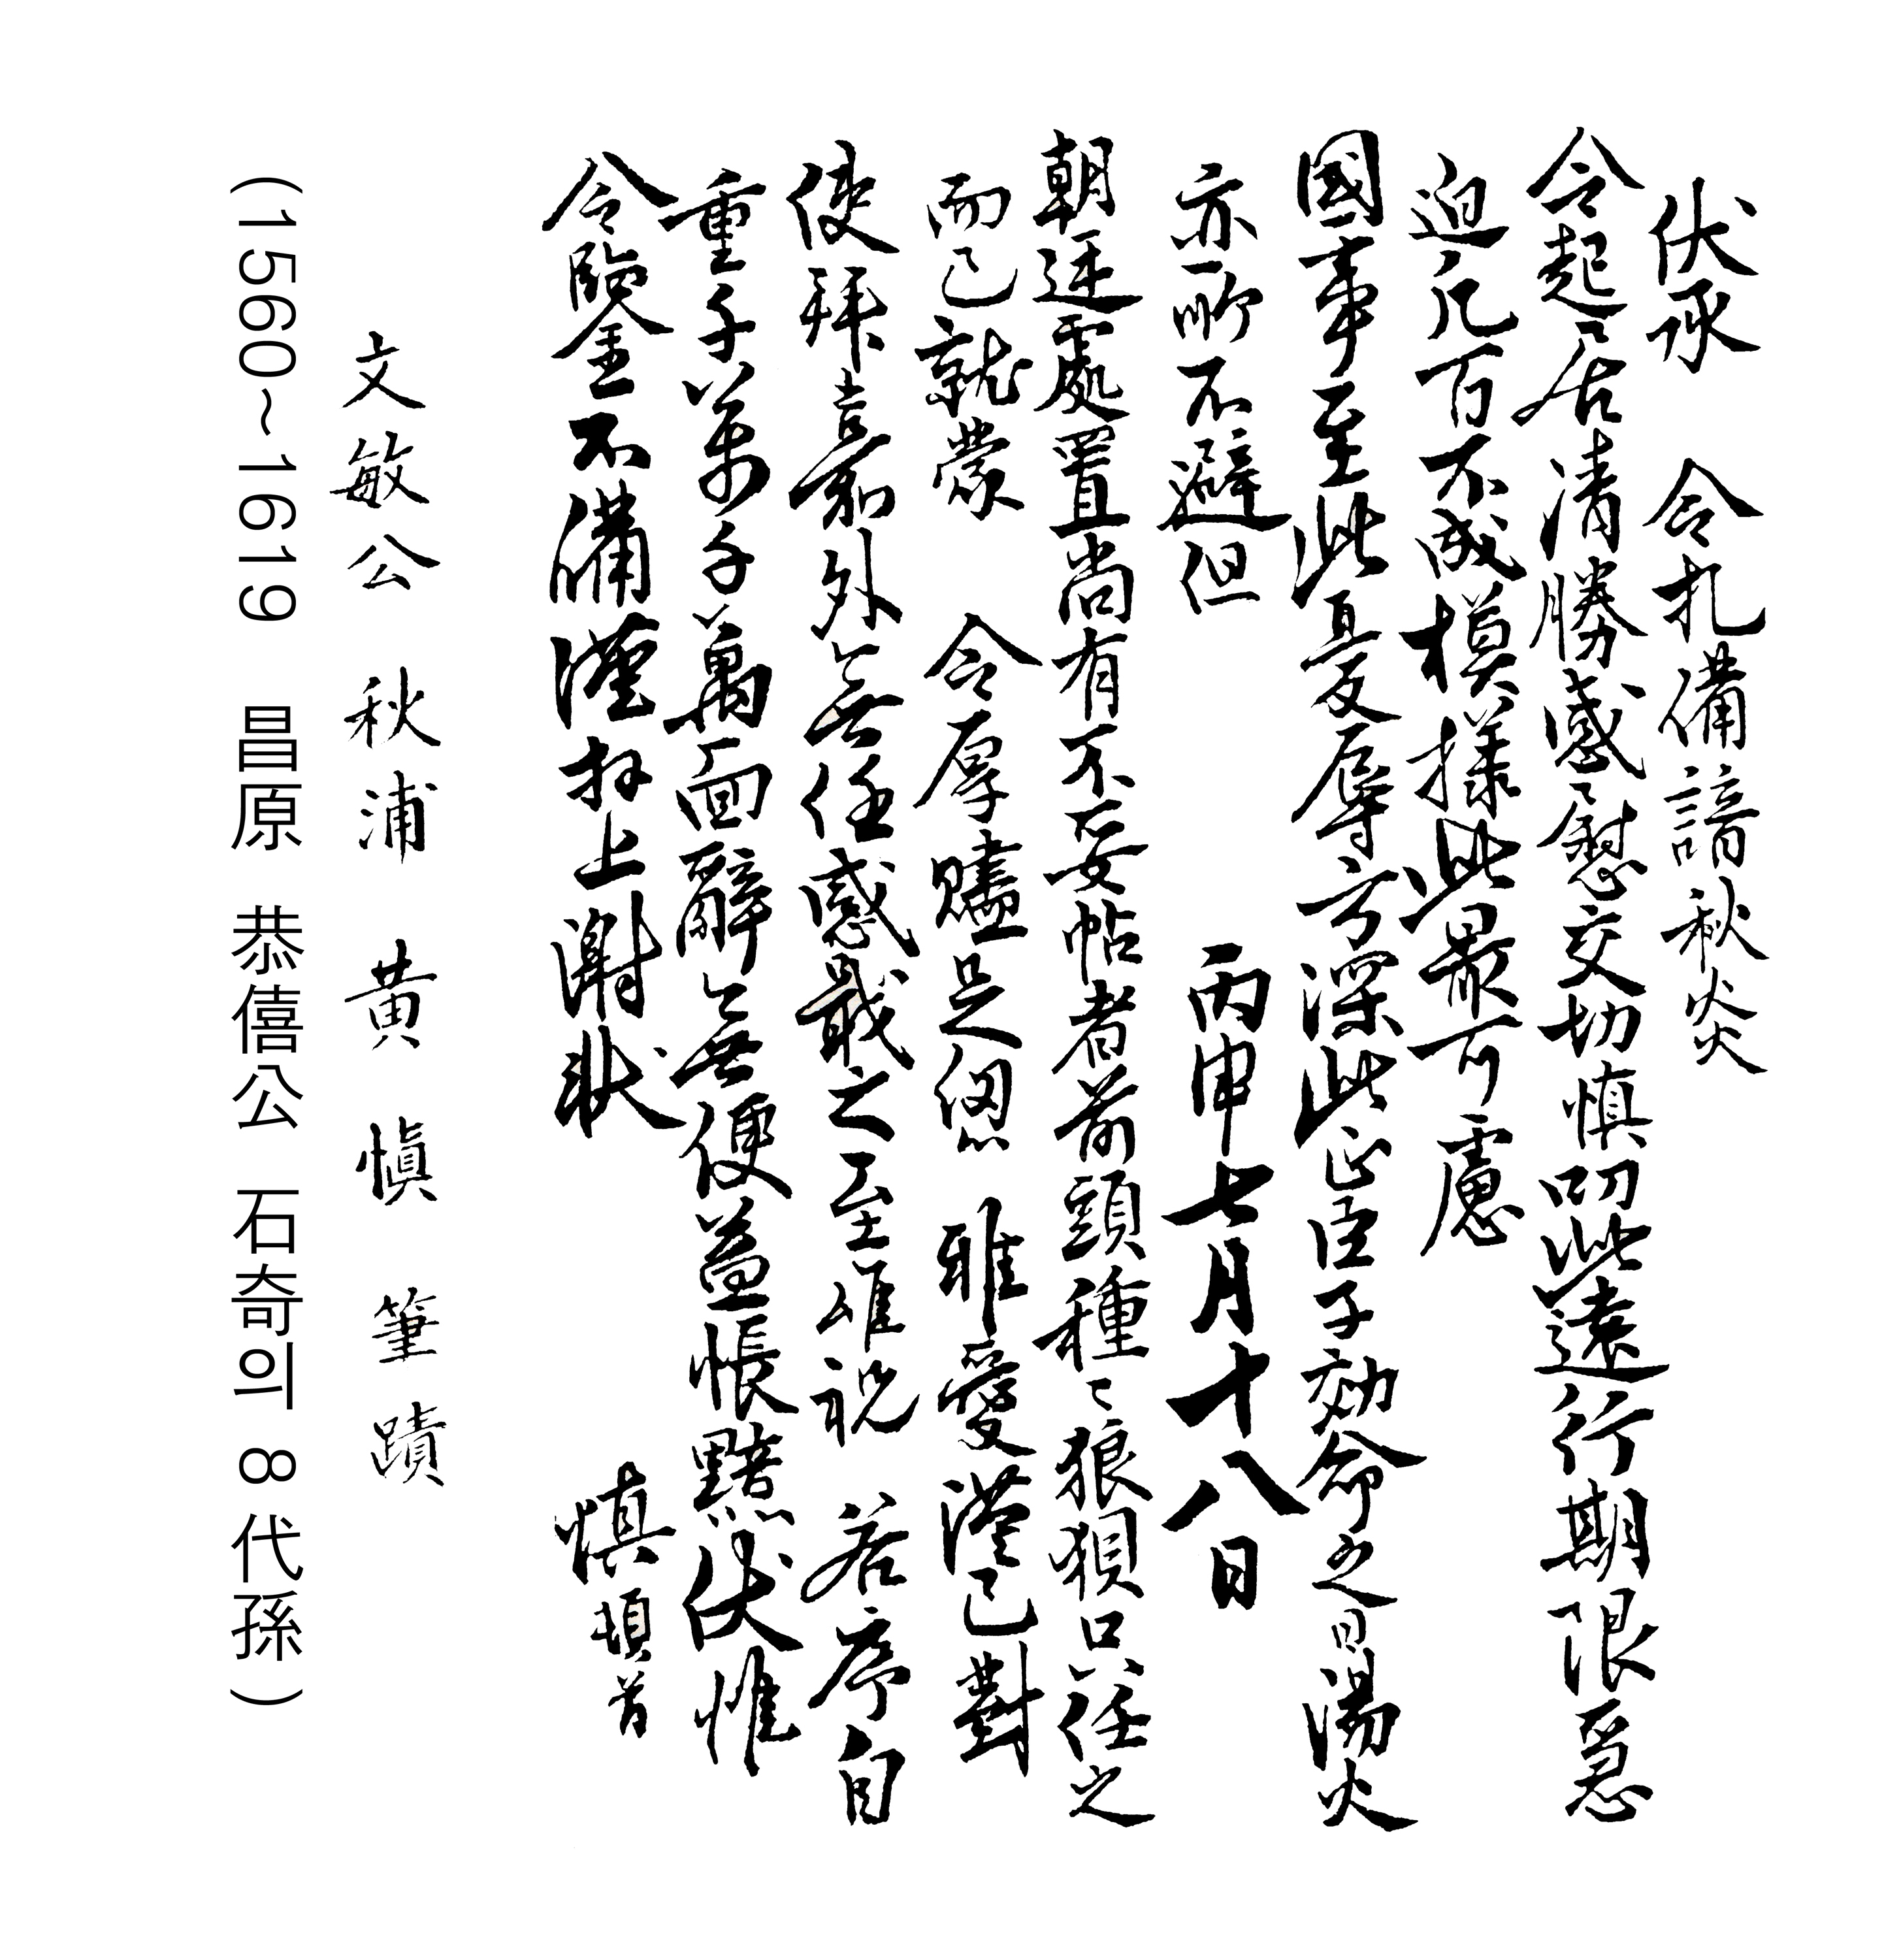 伏承 令札備諳秋炎
令起居清勝感慰交切愼 此遠行期限急
迫凡百不成模樣此最可慮
國事至此憂辱方深此正臣子効命之 湯火
亦所不避但 丙申七月十八日
朝廷處置尚有不妥帖者 頭種〻狼狽口 之
而已就蒙 令厚 雅愛 已對
使拜嘉外 任感戢之至 祝 若序自
重千萬千萬面 便 悵黯伏惟
令鑒不備謹拜上謝狀 愼頓首
文敏公 秋浦 黄愼 筆蹟
(1560~1619 昌原 恭僖公 石奇의 8代孫)